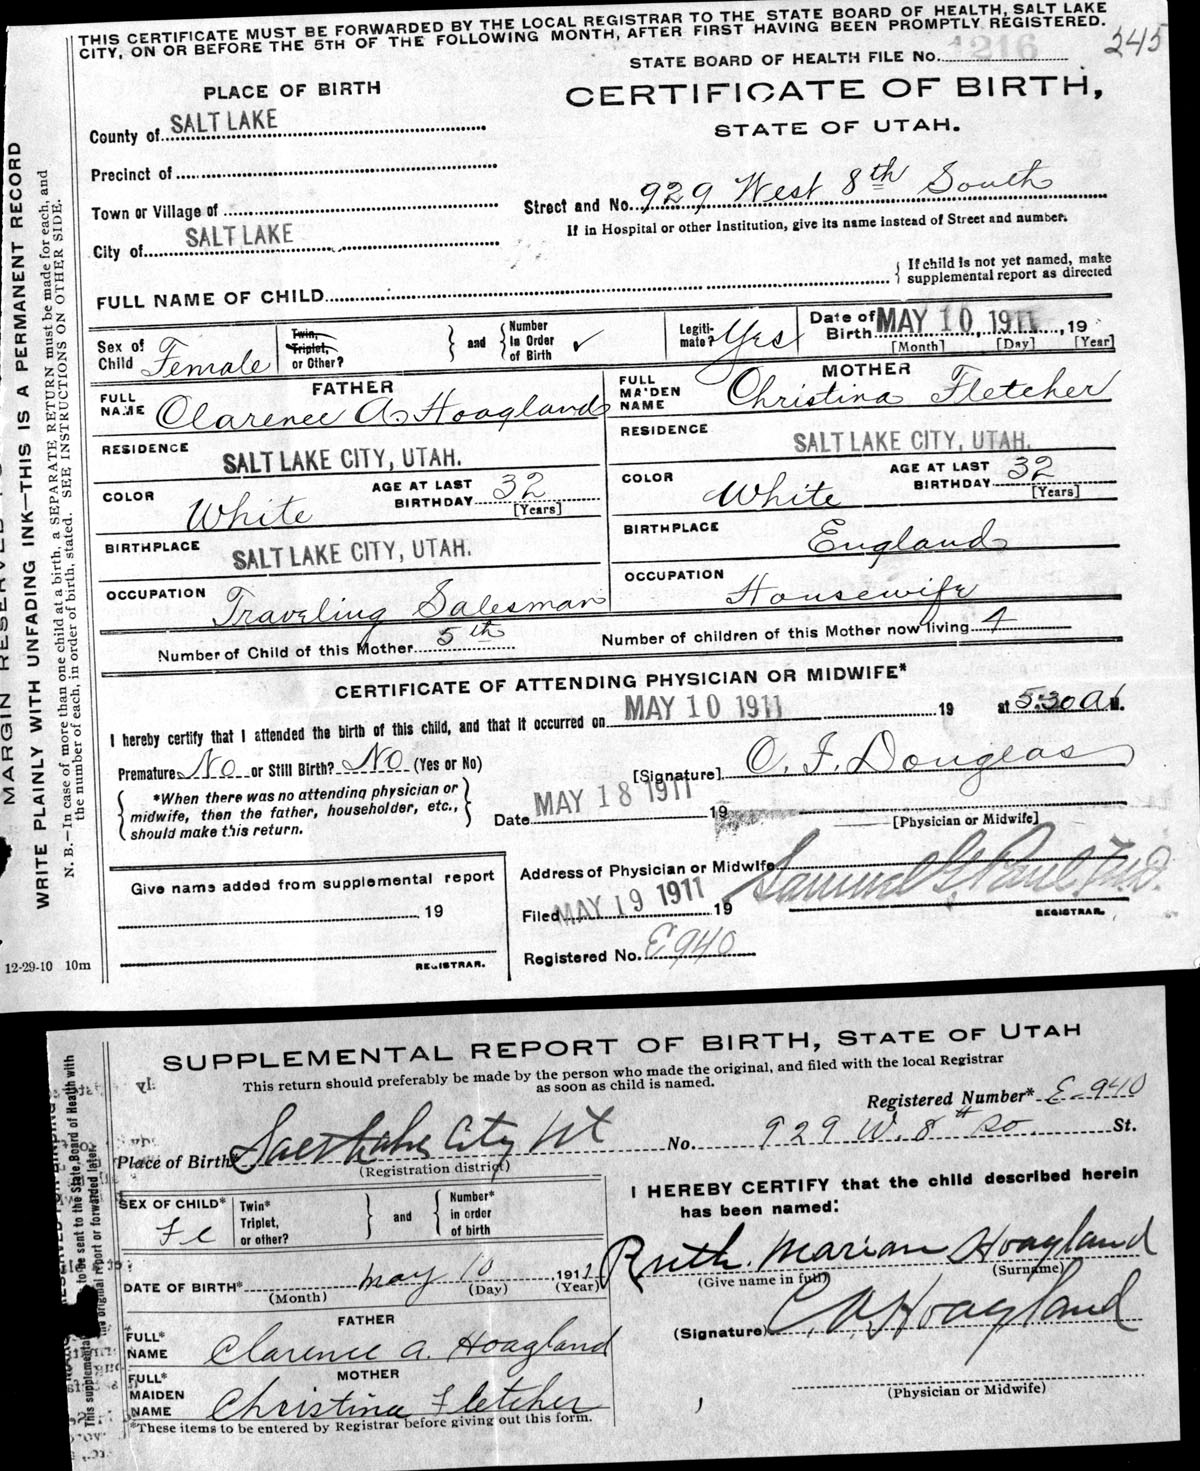 THIS CERTIFICATE MUST BE FORWARDED BY THE LOCAL REGISTRAR TO THE STATE BOARD OF HEALTH, SALT LAKE
CITY, ON OR BEFORE THE 5TH OF THE FOLLOWING MONTH, AFTER FIRST HAVING BEEN PROMPTLY REGISTERED.
245
STATE BOARD OF HEALTH FILE No. 1216
PLACE OF BIRTH
CERTIFICATE OF BIRTH,
STATE OF UTAH.
County of SALT LAKE
Precinct of
Town or Village of
Street and No. 929 West 8th South
If in Hospital or other Institution, give its name instead of Street and number.
City of SALT LAKE
FULL NAME OF CHILD
If child is not yet named, make
supplemental report as directed
Sex of
Child Female
Twin,
Triplet,
or Other?
and
Number
In Order
of Birth ✓
Legiti-
mate? Yes
Date of
Birth MAY 10 1911, 19
[Month] [Day] [Year]
FATHER
FULL
NAME Clarence A. Hoagland
MOTHER
FULL
MAIDEN
NAME Christina Fletcher
RESIDENCE SALT LAKE CITY, UTAH.
RESIDENCE SALT LAKE CITY, UTAH.
COLOR White
AGE AT LAST
BIRTHDAY 32
[Years]
COLOR White
AGE AT LAST
BIRTHDAY 32
[Years]
BIRTHPLACE SALT LAKE CITY, UTAH.
BIRTHPLACE England
OCCUPATION Traveling Salesman
OCCUPATION Housewife
Number of Child of this Mother 5th
Number of children of this Mother now living 4
CERTIFICATE OF ATTENDING PHYSICIAN OR MIDWIFE*
I hereby certify that I attended the birth of this child, and that it occurred on MAY 10 1911 19 at 5:30 A M.
Premature No or Still Birth? No (Yes or No)
[Signature] O. F. Douglas
*When there was no attending physician or
midwife, then the father, householder, etc.,
should make this return.
Date MAY 18 1911 19
[Physician or Midwife]
Give name added from supplemental report
, 19
REGISTRAR.
Address of Physician or Midwife
Filed MAY 19 1911 19
Samuel G. Paul, M.D.
REGISTRAR.
Registered No. E940
12-29-10 10m
WRITE PLAINLY WITH UNFADING INK—THIS IS A PERMANENT RECORD
N. B.—In case of more than one child at a birth, a SEPARATE RETURN must be made for each, and
the number of each, in order of birth, stated. SEE INSTRUCTIONS ON OTHER SIDE.
SUPPLEMENTAL REPORT OF BIRTH, STATE OF UTAH
This return should preferably be made by the person who made the original, and filed with the local Registrar
as soon as child is named.
Registered Number* E-940
Place of Birth* Salt Lake City Ut No. 929 W. 8th So. St.
(Registration district)
SEX OF CHILD* Fe
Twin*
Triplet,
or other?
and
Number*
in order
of birth
I HEREBY CERTIFY that the child described herein
has been named:
Ruth Marian Hoagland
(Give name in full) (Surname)
DATE OF BIRTH* May 10 1911
(Month) (Day) (Year)
(Signature) C. A. Hoagland
FATHER
FULL*
NAME Clarence A. Hoagland
MOTHER
FULL*
MAIDEN
NAME Christina Fletcher
(Physician or Midwife)
*These items to be entered by Registrar before giving out this form.